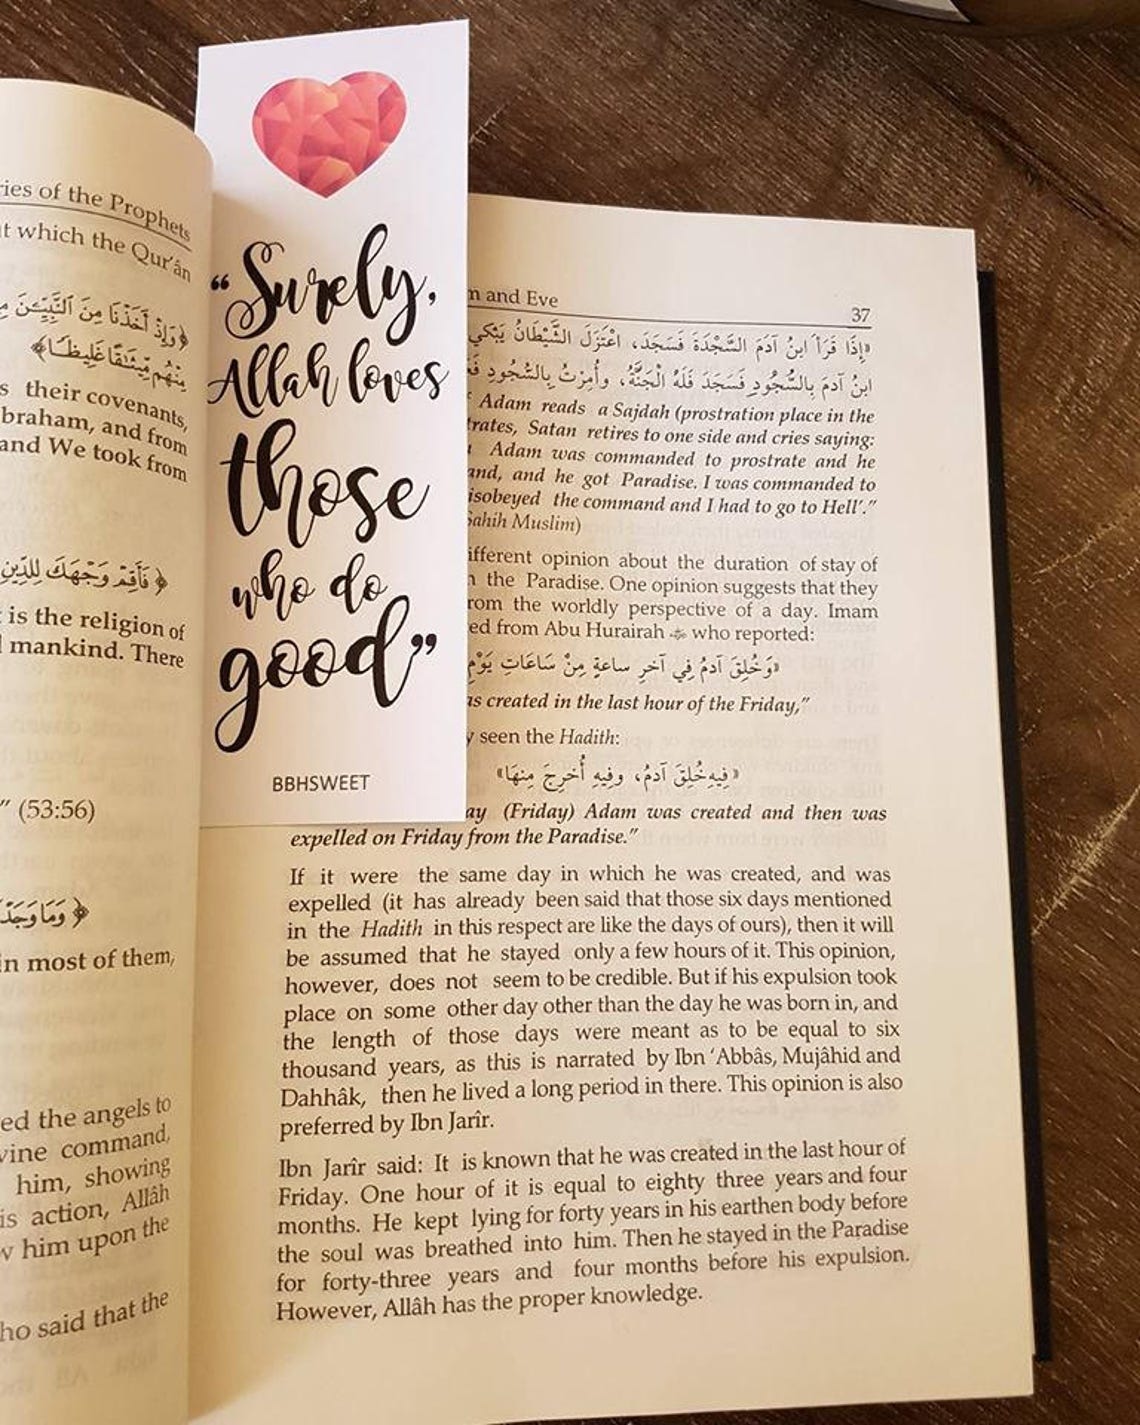 ries of the Prophets
t which the Qur'ân
﴿وَإِذْ أَخَذْنَا مِنَ ٱلنَّبِيِّـۧنَ
مِنْهُم مِّيثَـٰقًا غَلِيظًا﴾
s their covenants,
braham, and from
and We took from
﴿فَأَقِمْ وَجْهَكَ لِلدِّينِ
is the religion of
mankind. There
" (53:56)
﴿وَمَا وَجَدْ
in most of them,
ed the angels to
vine command,
him, showing
is action, Allâh
w him upon the
ho said that the
"Surely,
Allah loves
those
who do
good"
BBHSWEET
m and Eve 37
«إِذَا قَرَأَ ابنُ آدَمَ السَّجْدَةَ فَسَجَدَ، اعْتَزَلَ الشَّيْطَانُ يَبْكي
ابنُ آدمَ بِالسُّجُودِ فَسَجَدَ فَلَهُ الْجَنَّةُ، وأُمِرْتُ بِالسُّجُودِ
Adam reads a Sajdah (prostration place in the
trates, Satan retires to one side and cries saying:
Adam was commanded to prostrate and he
and, and he got Paradise. I was commanded to
isobeyed the command and I had to go to Hell'."
Sahih Muslim)
ifferent opinion about the duration of stay of
the Paradise. One opinion suggests that they
rom the worldly perspective of a day. Imam
ed from Abu Hurairah who reported:
«وَخُلِقَ آدمُ فِي آخرِ ساعةٍ مِنْ سَاعَاتِ يَوْمِ
as created in the last hour of the Friday,"
y seen the Hadith:
«فِيهِ خُلِقَ آدمُ، وفِيهِ أُخرِجَ مِنهَا»
ay (Friday) Adam was created and then was
expelled on Friday from the Paradise."
If it were the same day in which he was created, and was
expelled (it has already been said that those six days mentioned
in the Hadith in this respect are like the days of ours), then it will
be assumed that he stayed only a few hours of it. This opinion,
however, does not seem to be credible. But if his expulsion took
place on some other day other than the day he was born in, and
the length of those days were meant as to be equal to six
thousand years, as this is narrated by Ibn 'Abbâs, Mujâhid and
Dahhâk, then he lived a long period in there. This opinion is also
preferred by Ibn Jarîr.
Ibn Jarîr said: It is known that he was created in the last hour of
Friday. One hour of it is equal to eighty three years and four
months. He kept lying for forty years in his earthen body before
the soul was breathed into him. Then he stayed in the Paradise
for forty-three years and four months before his expulsion.
However, Allâh has the proper knowledge.